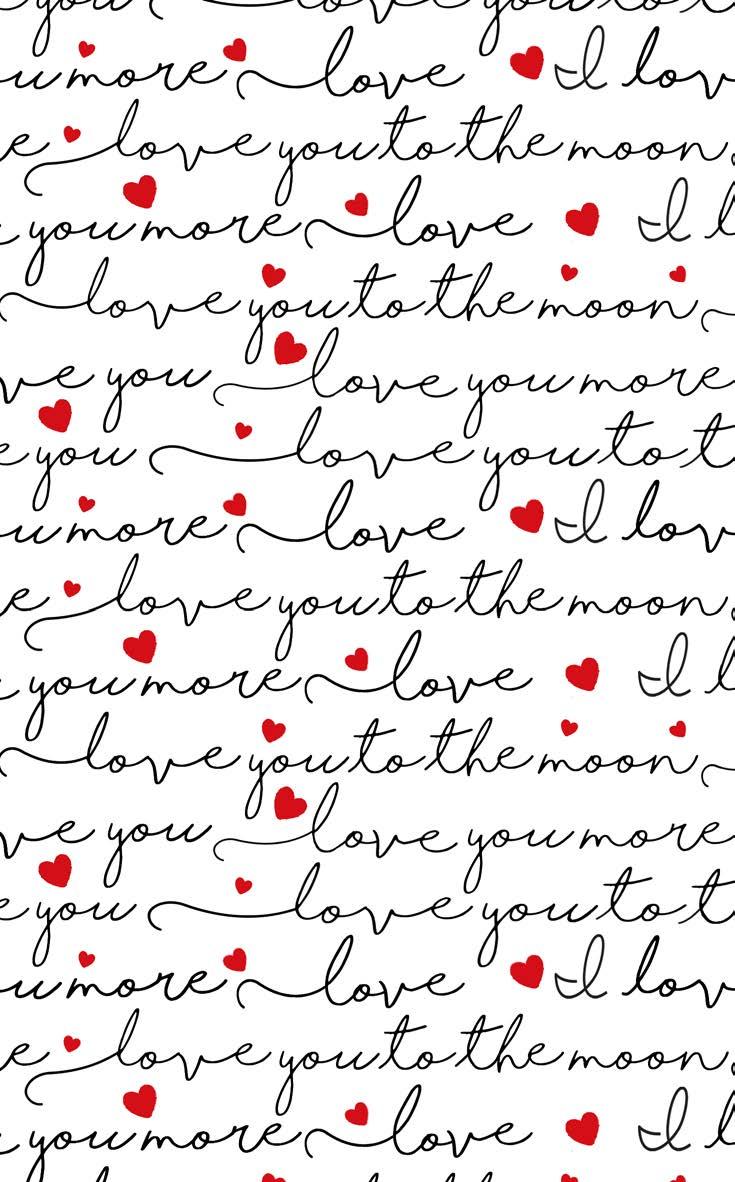 you more love I lov
e love you to the moon
you more love I l
love you to the moon
ve you love you more
e you love you to t
u more love I lov
e love you to the moon
you more love I l
love you to the moon
ve you love you more
e you love you to t
u more love I lov
e love you to the moon
you more love I l